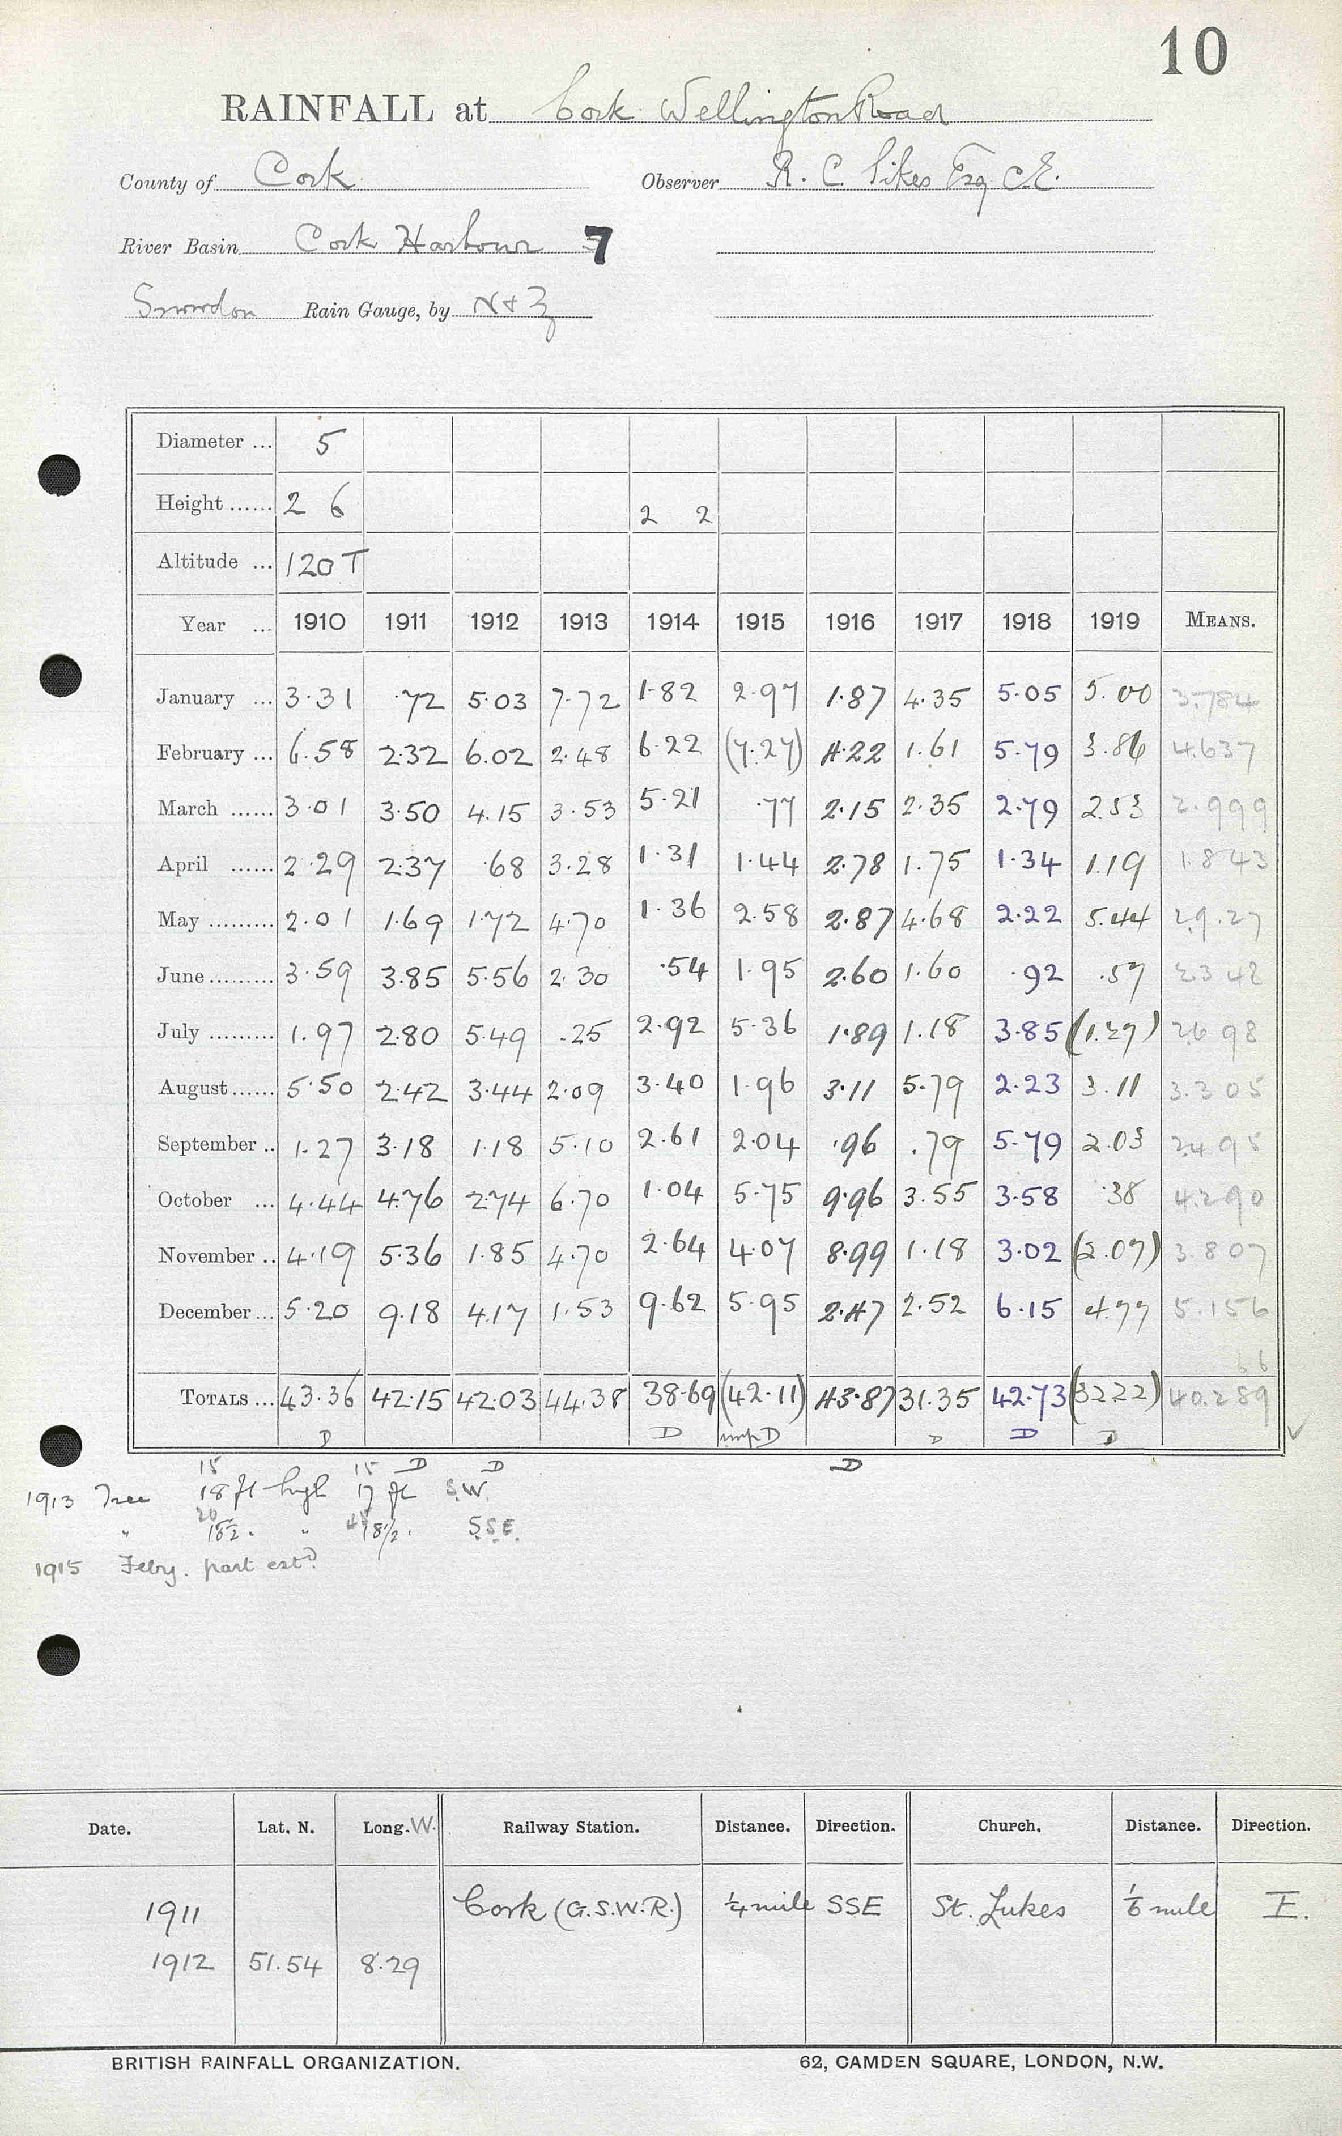 10
RAINFALL at Cork Wellington Road
County of Cork Observer R. C. Sikes Esq C.E.
River Basin Cork Harbour 7
Snowdon Rain Gauge, by N & Z
Diameter ... 5
Height ...... 2 6 2 2
Altitude ... 120 T
Year ... 1910 1911 1912 1913 1914 1915 1916 1917 1918 1919 MEANS.
January ... 3.31 .72 5.03 7.72 1.82 2.97 1.87 4.35 5.05 5.00 3.784
February ... 6.58 2.32 6.02 2.48 6.22 (7.27) 4.22 1.61 5.79 3.86 4.637
March ...... 3.01 3.50 4.15 3.53 5.21 .77 2.15 2.35 2.79 2.53 2.999
April ...... 2.29 2.37 .68 3.28 1.31 1.44 2.78 1.75 1.34 1.19 1.843
May ......... 2.01 1.69 1.72 4.70 1.36 2.58 2.87 4.68 2.22 5.44 2.9.27
June ......... 3.59 3.85 5.56 2.30 .54 1.95 2.60 1.60 .92 .57 2.348
July ......... 1.97 2.80 5.49 .25 2.92 5.36 1.89 1.18 3.85 (1.27) 2.698
August ...... 5.50 2.42 3.44 2.09 3.40 1.96 3.11 5.79 2.23 3.11 3.305
September .. 1.27 3.18 1.18 5.10 2.61 2.04 .96 .79 5.79 2.03 2.495
October ... 4.44 4.76 2.74 6.70 1.04 5.75 9.96 3.55 3.58 .38 4.290
November .. 4.19 5.36 1.85 4.70 2.64 4.07 8.99 1.18 3.02 (2.07) 3.807
December ... 5.20 9.18 4.17 1.53 9.62 5.95 2.47 2.52 6.15 4.77 5.156
66
TOTALS ... 43.36 42.15 42.03 44.38 38.69 (42.11) 43.87 31.35 42.73 (32.22) 40.289
D D D D D
15 15 D D D
1913 Tree 18 ft high 17 ft S.W.
20
" 18½ " " 18½ S.S.E.
1915 Feby. part estd.
Date. Lat. N. Long. W. Railway Station. Distance. Direction. Church. Distance. Direction.
1911 Cork (G.S.W.R.) ¼ mile SSE St. Lukes ⅙ mile E.
1912 51.54 8.29
BRITISH RAINFALL ORGANIZATION. 62, CAMDEN SQUARE, LONDON, N.W.